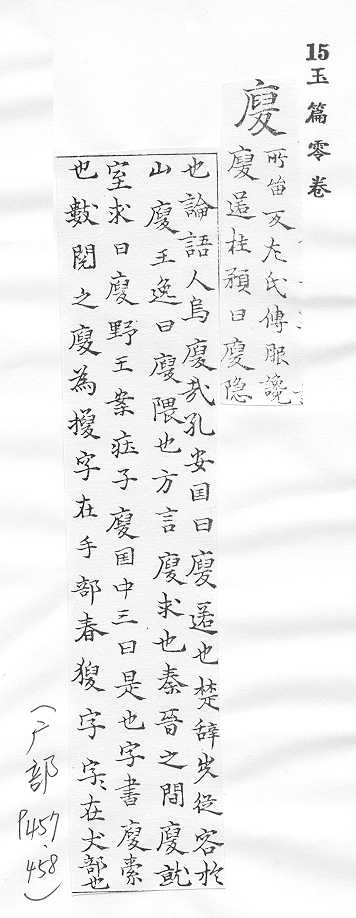 15玉篇零卷
廋 所留反左氏傳服讒
廋逞杜預曰廋隐
也論語人烏廋㢤孔安国曰廋逞也楚辞步従容於
山廋王逸曰廋隈也方言廋求也秦晉之間廋就
室求曰廋野王案莊子廋国中三日是也字書廋索
也數閱之廋為摉字在手部春獀字〻在犬部也
(广部
P457、
458)